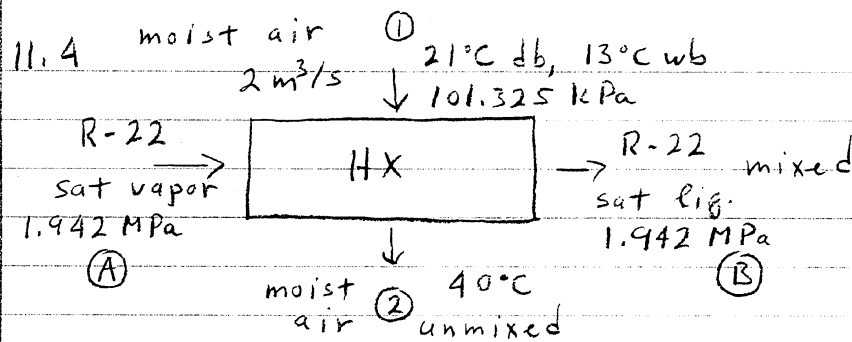 11.4 moist air ①
2 m³/s 21°C db, 13°C wb
101.325 kPa
R-22 HX R-22 mixed
sat vapor sat liq.
1.942 MPa 1.942 MPa
Ⓐ Ⓑ
moist ② 40°C
air unmixed